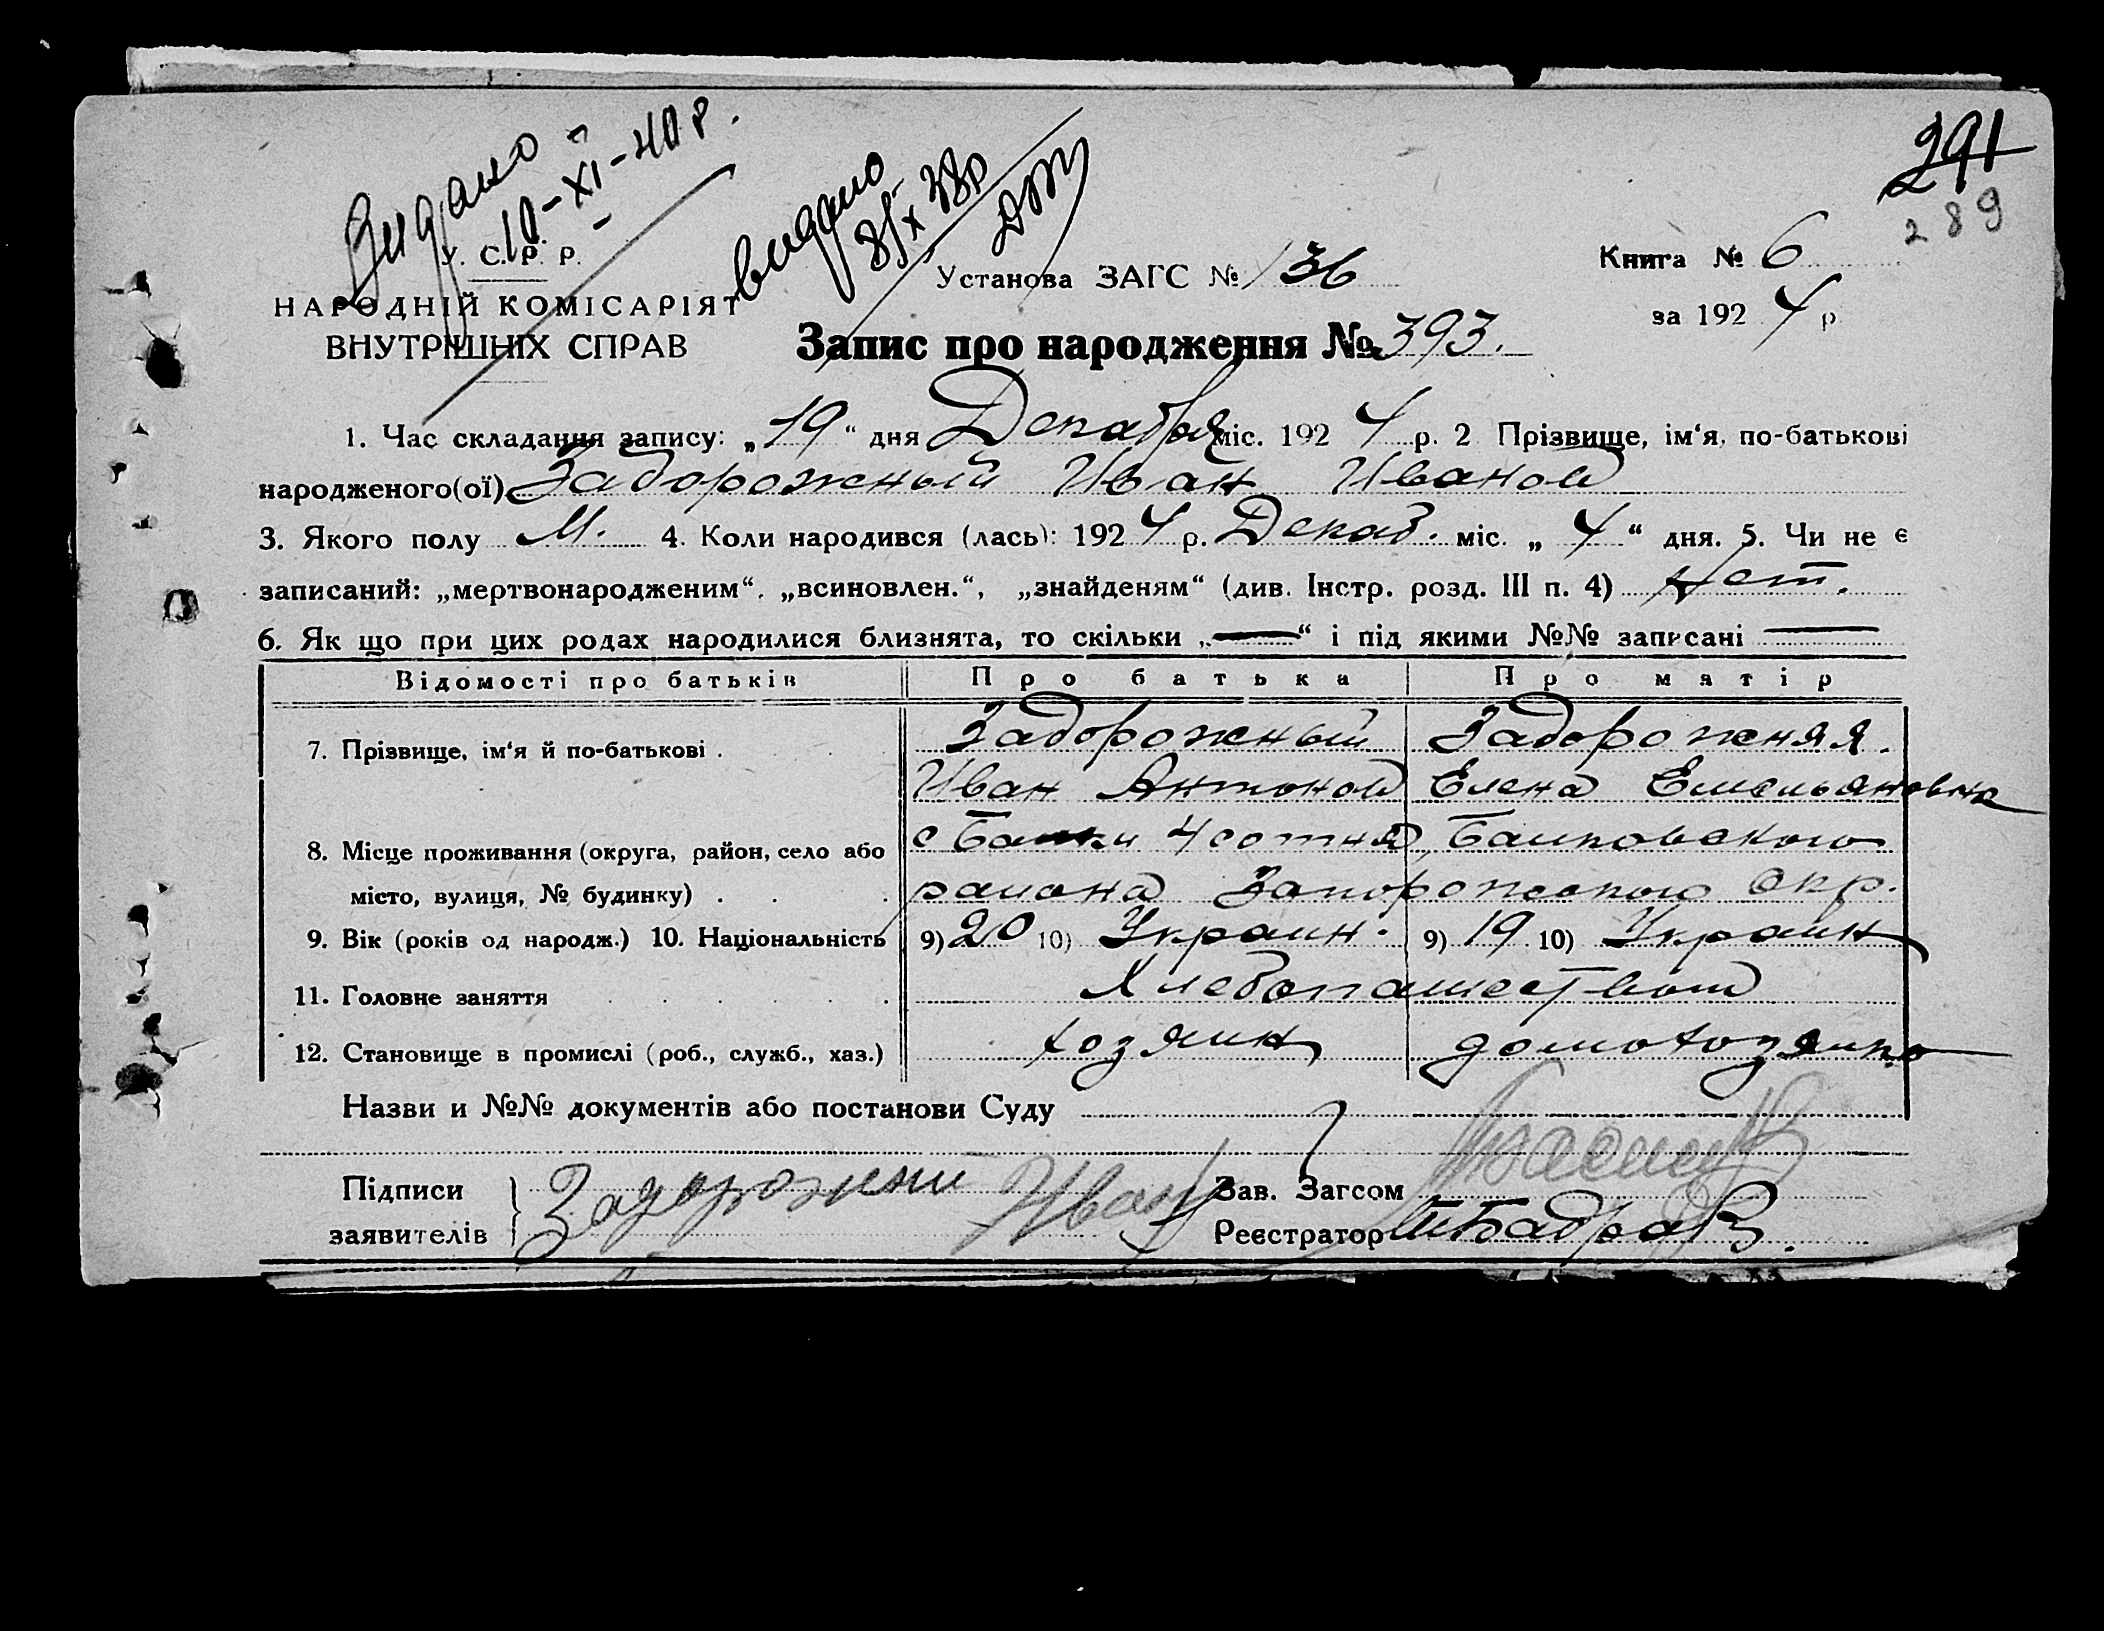 291
289
Видано 10-XI-40 р.
видано
У. С. Р. Р.
НАРОДНІЙ КОМІСАРІЯТ
ВНУТРІШНІХ СПРАВ
Установа ЗАГС № 36
Книга № 6
за 1924 р
Запис про народження № 393.
1. Час складання запису: „19“ дня Декабря міс. 1924 р. 2 Прізвище, ім‘я, по-батькові
народженого(ої) Задорожный Иван Иванов
3. Якого полу М. 4. Коли народився (лась): 1924 р. Декаб. міс. „4“ дня. 5. Чи не є
записаний: „мертвонародженим“, „всиновлен.“, „знайденям“ (див. Інстр. розд. III п. 4) Нет.
6. Як що при цих родах народилися близнята, то скільки „—“ і під якими №№ записані —
Відомості про батьків Про батька Про матір
7. Прізвище, ім‘я й по-батькові . Задорожный Задорожняя.
Иван Антонов Елена Емельяновна
8. Місце проживання (округа, район, село або с Балки 4 сотня, Балковского
місто, вулиця, № будинку) . . . района Запорожского окр.
9. Вік (років од народж.) 10. Національність 9) 20 10) Украин. 9) 19 10) Украин
11. Головне заняття Хлебопашеством
12. Становище в промислі (роб., служб., хаз.) хозяин домохозяйка
Назви и №№ документів або постанови Суду
Підписи Задорожний Иван Зав. Загсом
заявителів Реєстратор